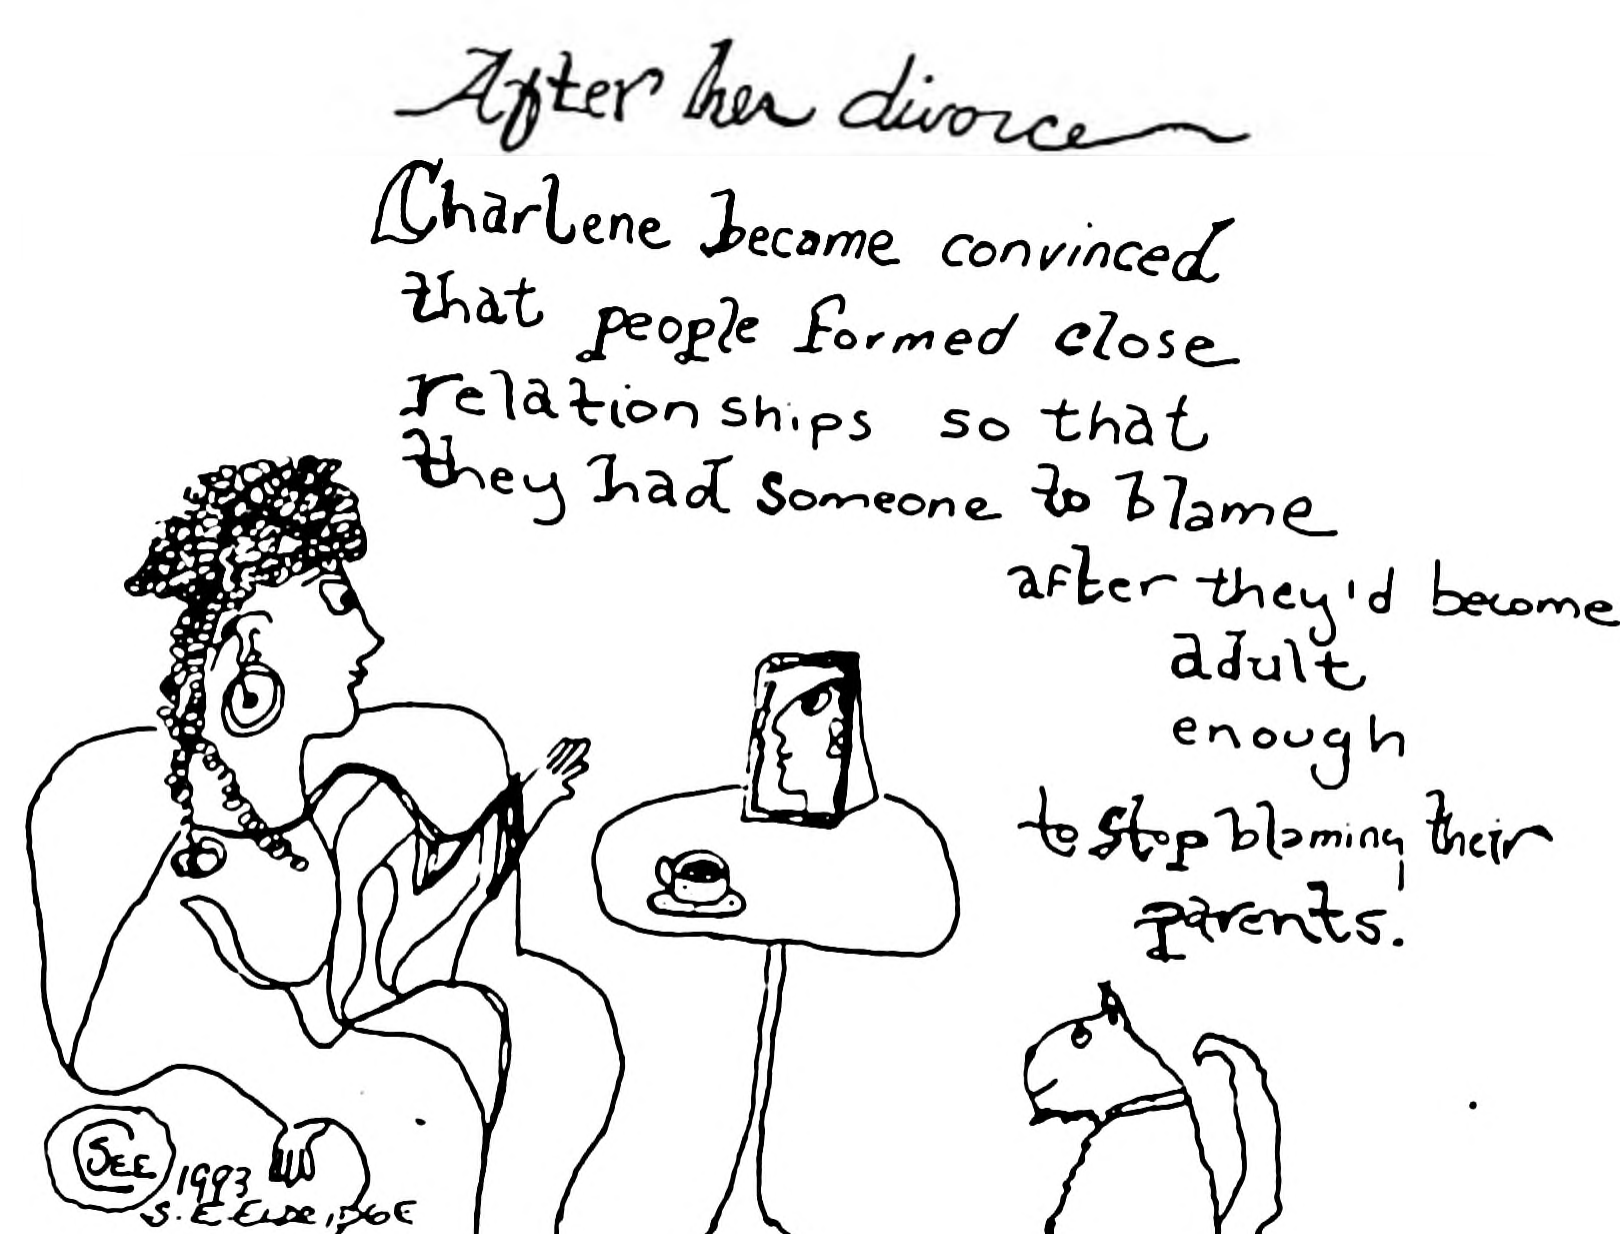 After her divorce
Charlene became convinced
that people formed close
relationships so that
they had someone to blame
after they'd become
adult
enough
to stop blaming their
parents.
SEE
1993
S. E. ELDRIDGE